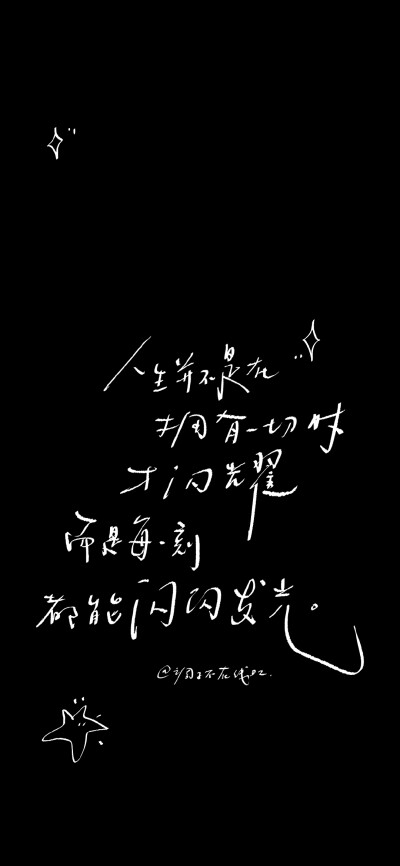 人生并不是在
拥有一切时
才闪耀
而是每一刻
都能闪闪发光。